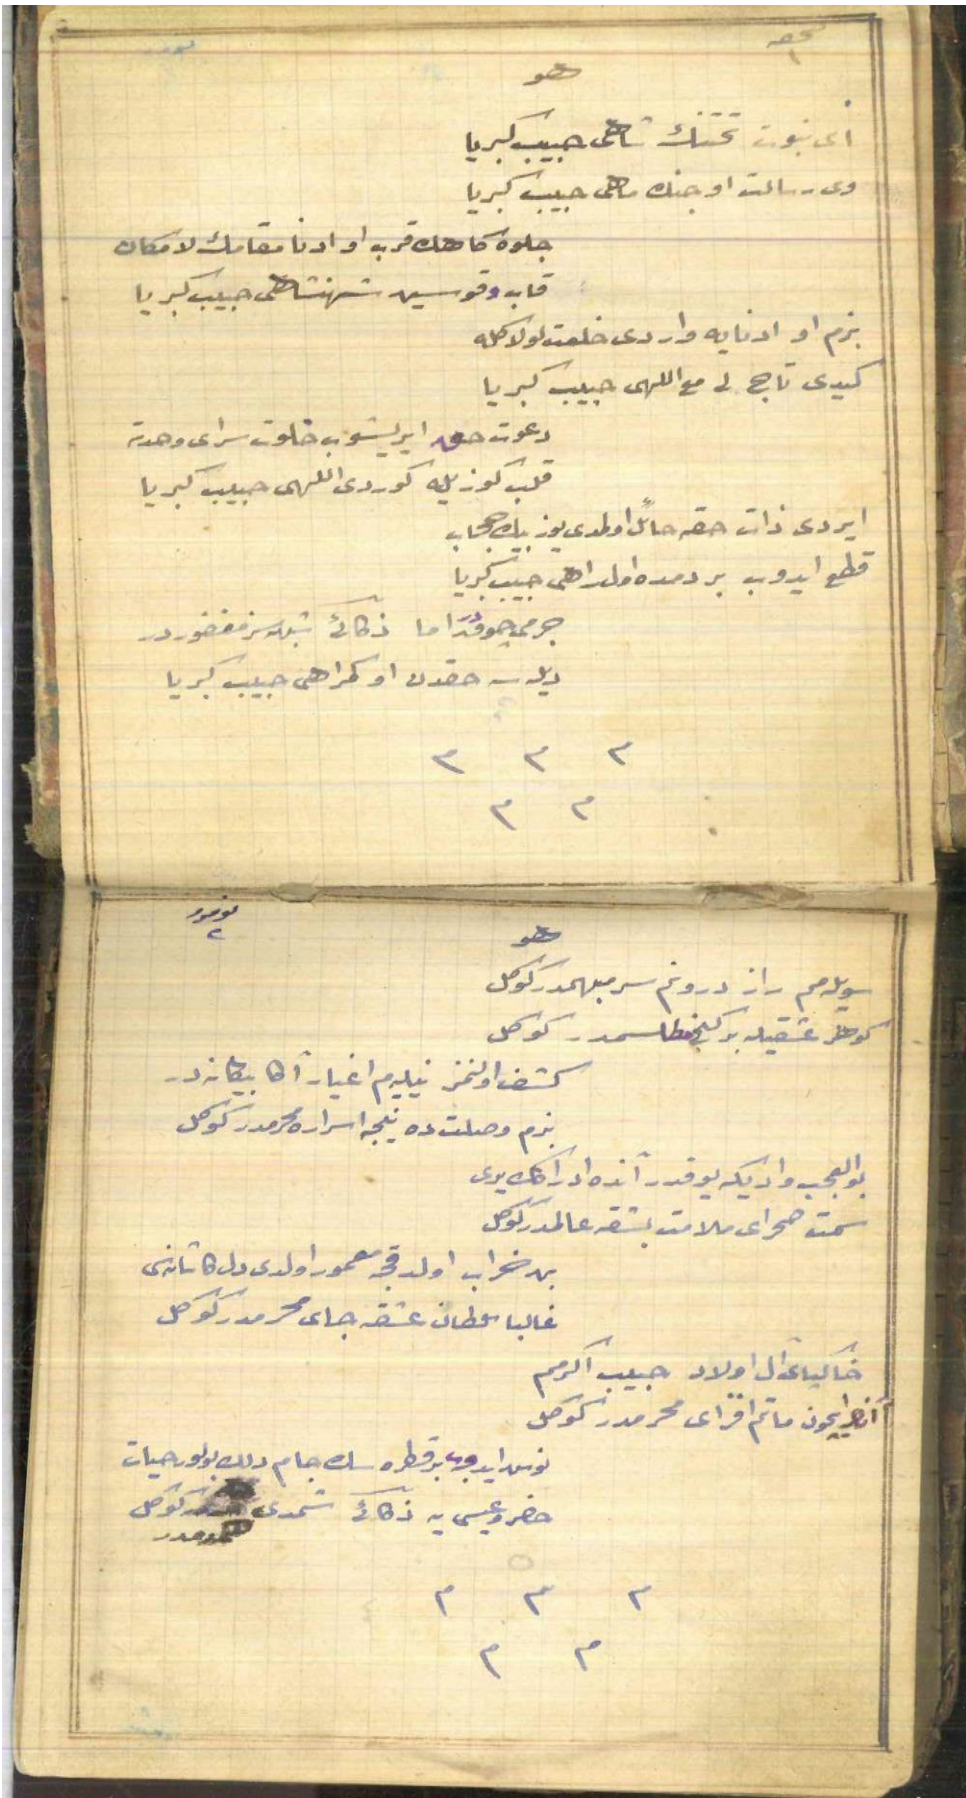 صحيفه ١
هو
اى نبوت تختنك شاهى حبيب كبريا
وى رسالت اوجنك ماهى حبيب كبريا
جلوه كاهك قرب او ادنا مقامك لامكان
قاب و قوسين شهنشاهى حبيب كبريا
بزم او ادنايه واردى خلعت لولاكله
كيدى تاج لى مع اللهى حبيب كبريا
دعوت حق ايريشوب خلوت سراى وحدته
قلب كوزيله كوردى اللهى حبيب كبريا
ايردى ذات حقه حائل اولمدى يوز بيك حجاب
قطع ايدوب بر دمده اول راهى حبيب كبريا
جرمى چوقدر اما ذكائى شبهه سز مغفوردر
ديله سه حقدن او كمراهى حبيب كبريا
م م م
م م
نومرو ٢
هو
سويله مم راز درونم سر مبهمدر كوكل
كوهر عشقيله بر كنج مطلسمدر كوكل
كشف اولنمز نيليه م اغيار آكا بيكانه در
بزم وصلت ده نيجه اسراره محرمدر كوكل
بو العجب وادیكه يوقدر آنده ادراكك يرى
سمت صحراى ملامت بشقه عالمدر كوكل
بن خراب اولدقجه معمور اولدى دل كاشانه سى
غالبا سلطان عشقه جاى محرمدر كوكل
خاكپاى آل اولاد حبيب اكرمم
آنلر ايچون ماتم افزاى محرمدر كوكل
نوش ايدوب بر قطره سك جام دلك بولور حيات
خضر و عيسى يه ذكائى شمدى كوكل
م م م
م م